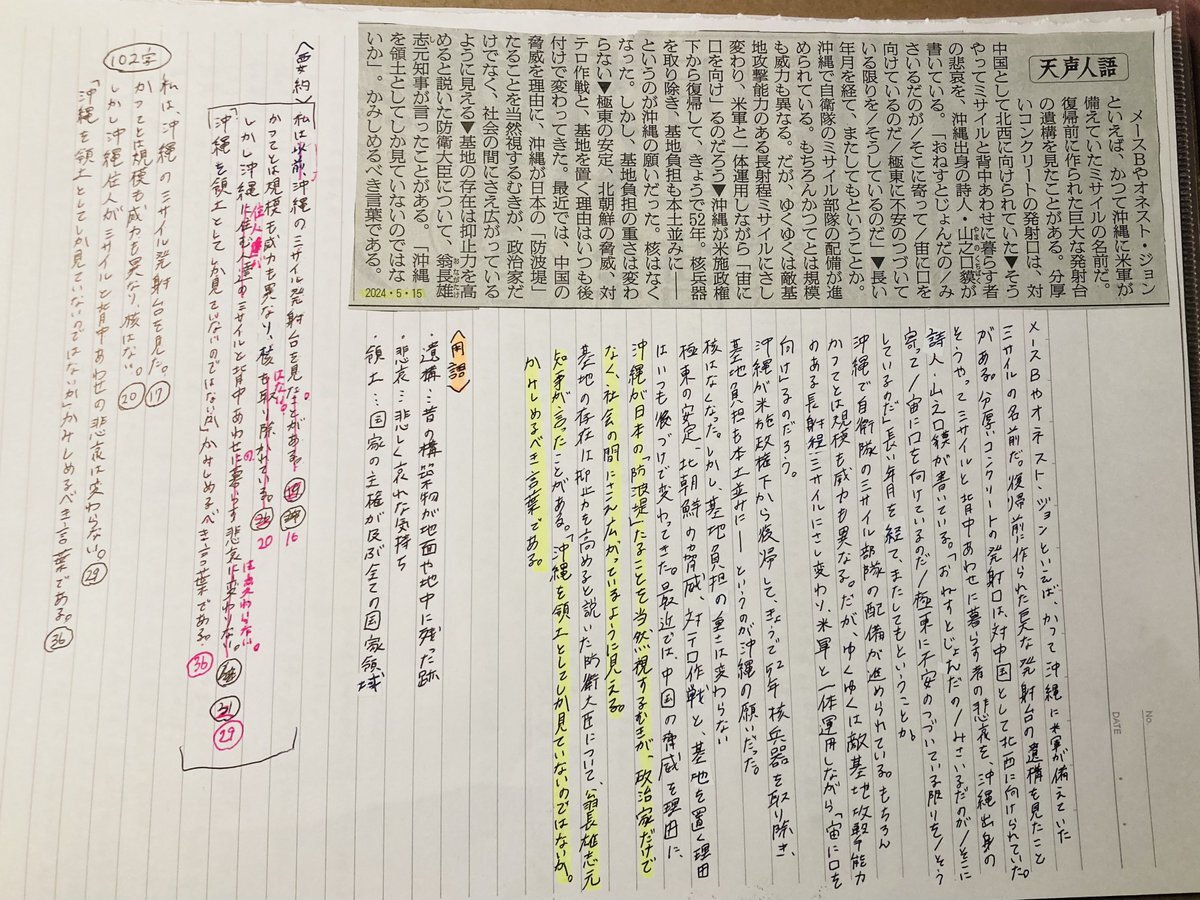 天声人語
メースBやオネスト・ジョン
といえば、かつて沖縄に米軍が
備えていたミサイルの名前だ。
復帰前に作られた巨大な発射台
の遺構を見たことがある。分厚
いコンクリートの発射口は、対
中国として北西に向けられていた▼そう
やってミサイルと背中あわせに暮らす者
の悲哀を、沖縄出身の詩人・山之口貘が
書いている。「おねすとじょんだの/み
さいるだのが/そこに寄って/宙に口を
向けているのだ/極東に不安のつづいて
いる限りを/そうしているのだ」▼長い
年月を経て、またしてもということか。
沖縄で自衛隊のミサイル部隊の配備が進
められている。もちろんかつてとは規模
も威力も異なる。だが、ゆくゆくは敵基
地攻撃能力のある長射程ミサイルにさし
変わり、米軍と一体運用しながら「宙に
口を向け」るのだろう▼沖縄が米施政権
下から復帰して、きょうで52年。核兵器
を取り除き、基地負担も本土並みに――
というのが沖縄の願いだった。核はなく
なった。しかし、基地負担の重さは変わ
らない▼極東の安定、北朝鮮の脅威、対
テロ作戦と、基地を置く理由はいつも後
付けで変わってきた。最近では、中国の
脅威を理由に、沖縄が日本の「防波堤」
たることを当然視するむきが、政治家だ
けでなく、社会の間にさえ広がっている
ように見える▼基地の存在は抑止力を高
めると説いた防衛大臣について、翁長雄
おながたけ
志元知事が言ったことがある。「沖縄
し
を領土としてしか見ていないのではな
いか」。かみしめるべき言葉である。
2024・5・15
No.
DATE
メースBやオネスト・ジョンといえば、かつて沖縄に米軍が備えていた
ミサイルの名前だ。復帰前に作られた巨大な発射台の遺構を見たこと
がある。分厚いコンクリートの発射口は、対中国として北西に向けられていた。
そうやってミサイルと背中あわせに暮らす者の悲哀を、沖縄出身の
詩人・山之口貘が書いている。「おねすとじょんだの/みさいるだのが/そこに
寄って/宙に口を向けているのだ/極東に不安のつづいている限りを/そう
しているのだ」長い年月を経て、またしてもということか。
沖縄で自衛隊のミサイル部隊の配備が進められている。もちろん
かつてとは規模も威力も異なる。だが、ゆくゆくは敵基地攻撃能力
のある長射程ミサイルにさし変わり、米軍と一体運用しながら「宙に口を
向け」るのだろう。
沖縄が米施政権下から復帰して、きょうで52年。核兵器を取り除き、
基地負担も本土並みに――というのが沖縄の願いだった。
核はなくなった。しかし、基地負担の重さは変わらない
極東の安定、北朝鮮の脅威、対テロ作戦と、基地を置く理由
はいつも後づけで変わってきた。最近では、中国の脅威を理由に、
沖縄が日本の「防浪堤」たることを当然視するむきが、政治家だけで
なく、社会の間にさえ広がっているように見える。
基地の存在は抑止力を高めると説いた防衛大臣について、翁長雄志元
知事が言ったことがある。「沖縄を領土としてしか見ていないのではないか。
かみしめるべき言葉である。
〈用語〉
・遺構…昔の構築物が地面や地中に残った跡
・悲哀…悲しく哀れな気持ち
・領土…国家の主権が及ぶ全ての国家領域
〈要約〉
私は以前、沖縄のミサイル発射台を見たことがある。
16
かつてとは規模も威力も異なり、核も取り除かれている。
はない。
20
しかし沖縄に住む人達のミサイルと背中あわせに暮らす悲哀に変わりない。
住人が
の
は変わらない。
31
29
「沖縄を領土としてしか見ていないのではないか」かみしめるべき言葉である。
36
102字
私は、沖縄のミサイル発射台を見た。 17
かつてとは規模も威力も異なり、核はない。 20
しかし沖縄住人がミサイルと背中あわせの悲哀は変わらない。 29
「沖縄を領土としてしか見ていないのではないか」かみしめるべき言葉である。 36